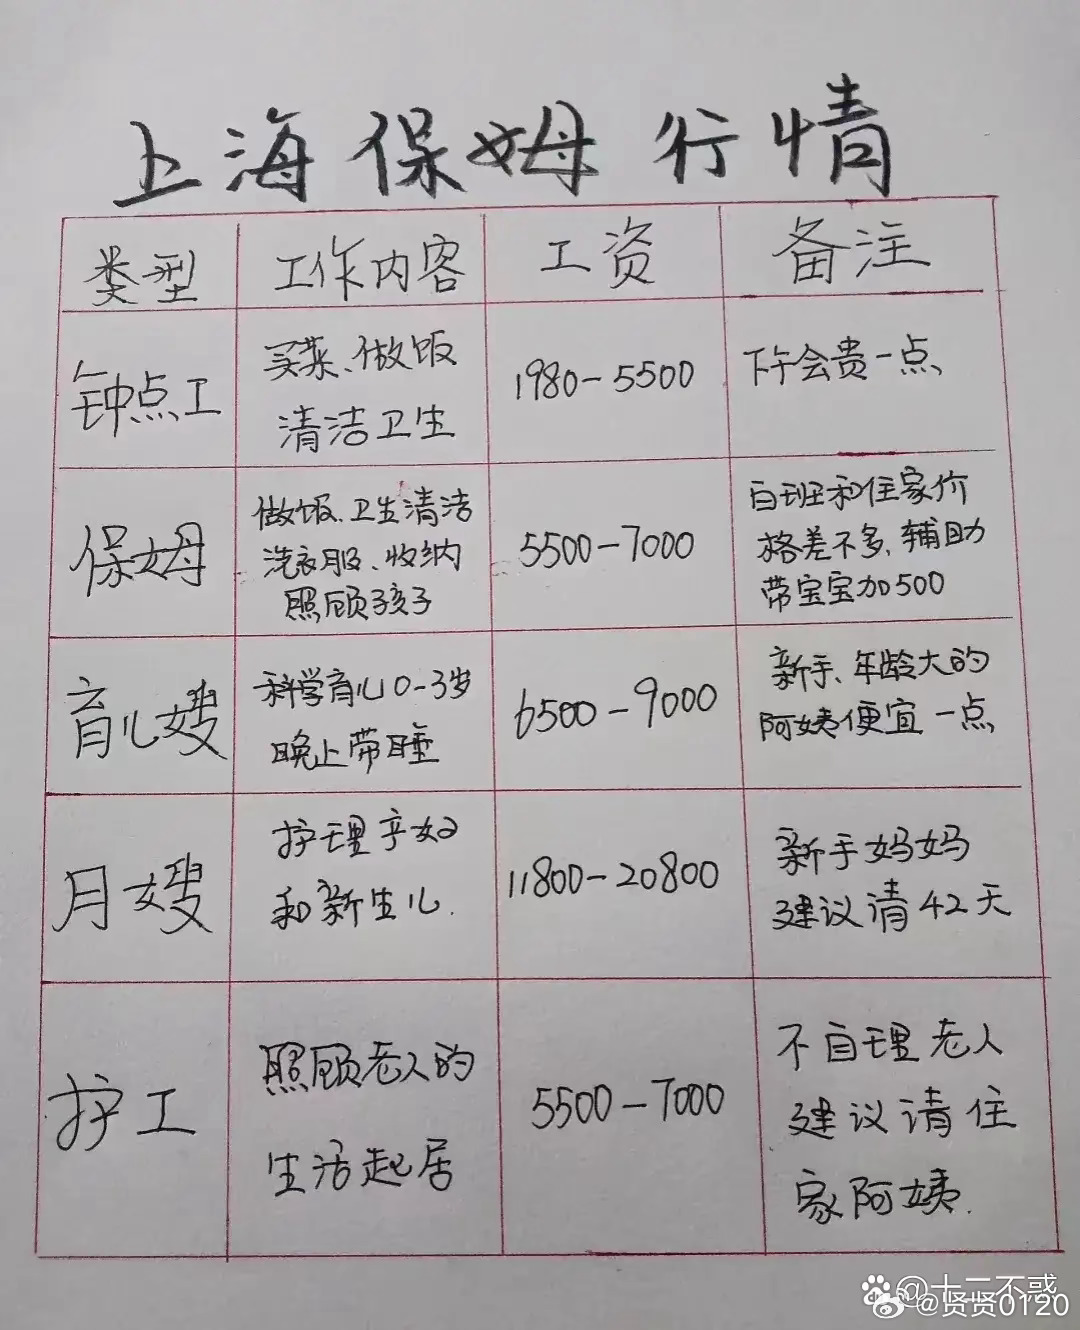 上海保姆行情
类型 工作内容 工资 备注
钟点工
买菜、做饭
清洁卫生
1980-5500
下午会贵一点
保姆
做饭、卫生清洁
洗衣服、收纳
照顾孩子
5500-7000
白班和住家价
格差不多,辅助
带宝宝加500
育儿嫂
科学育儿0-3岁
晚上带睡
6500-9000
新手、年龄大的
阿姨便宜一点
月嫂
护理产妇
和新生儿.
11800-20800
新手妈妈
建议请42天
护工
照顾老人的
生活起居
5500-7000
不自理老人
建议请住
家阿姨.
@十二不惑
@贤贤0120